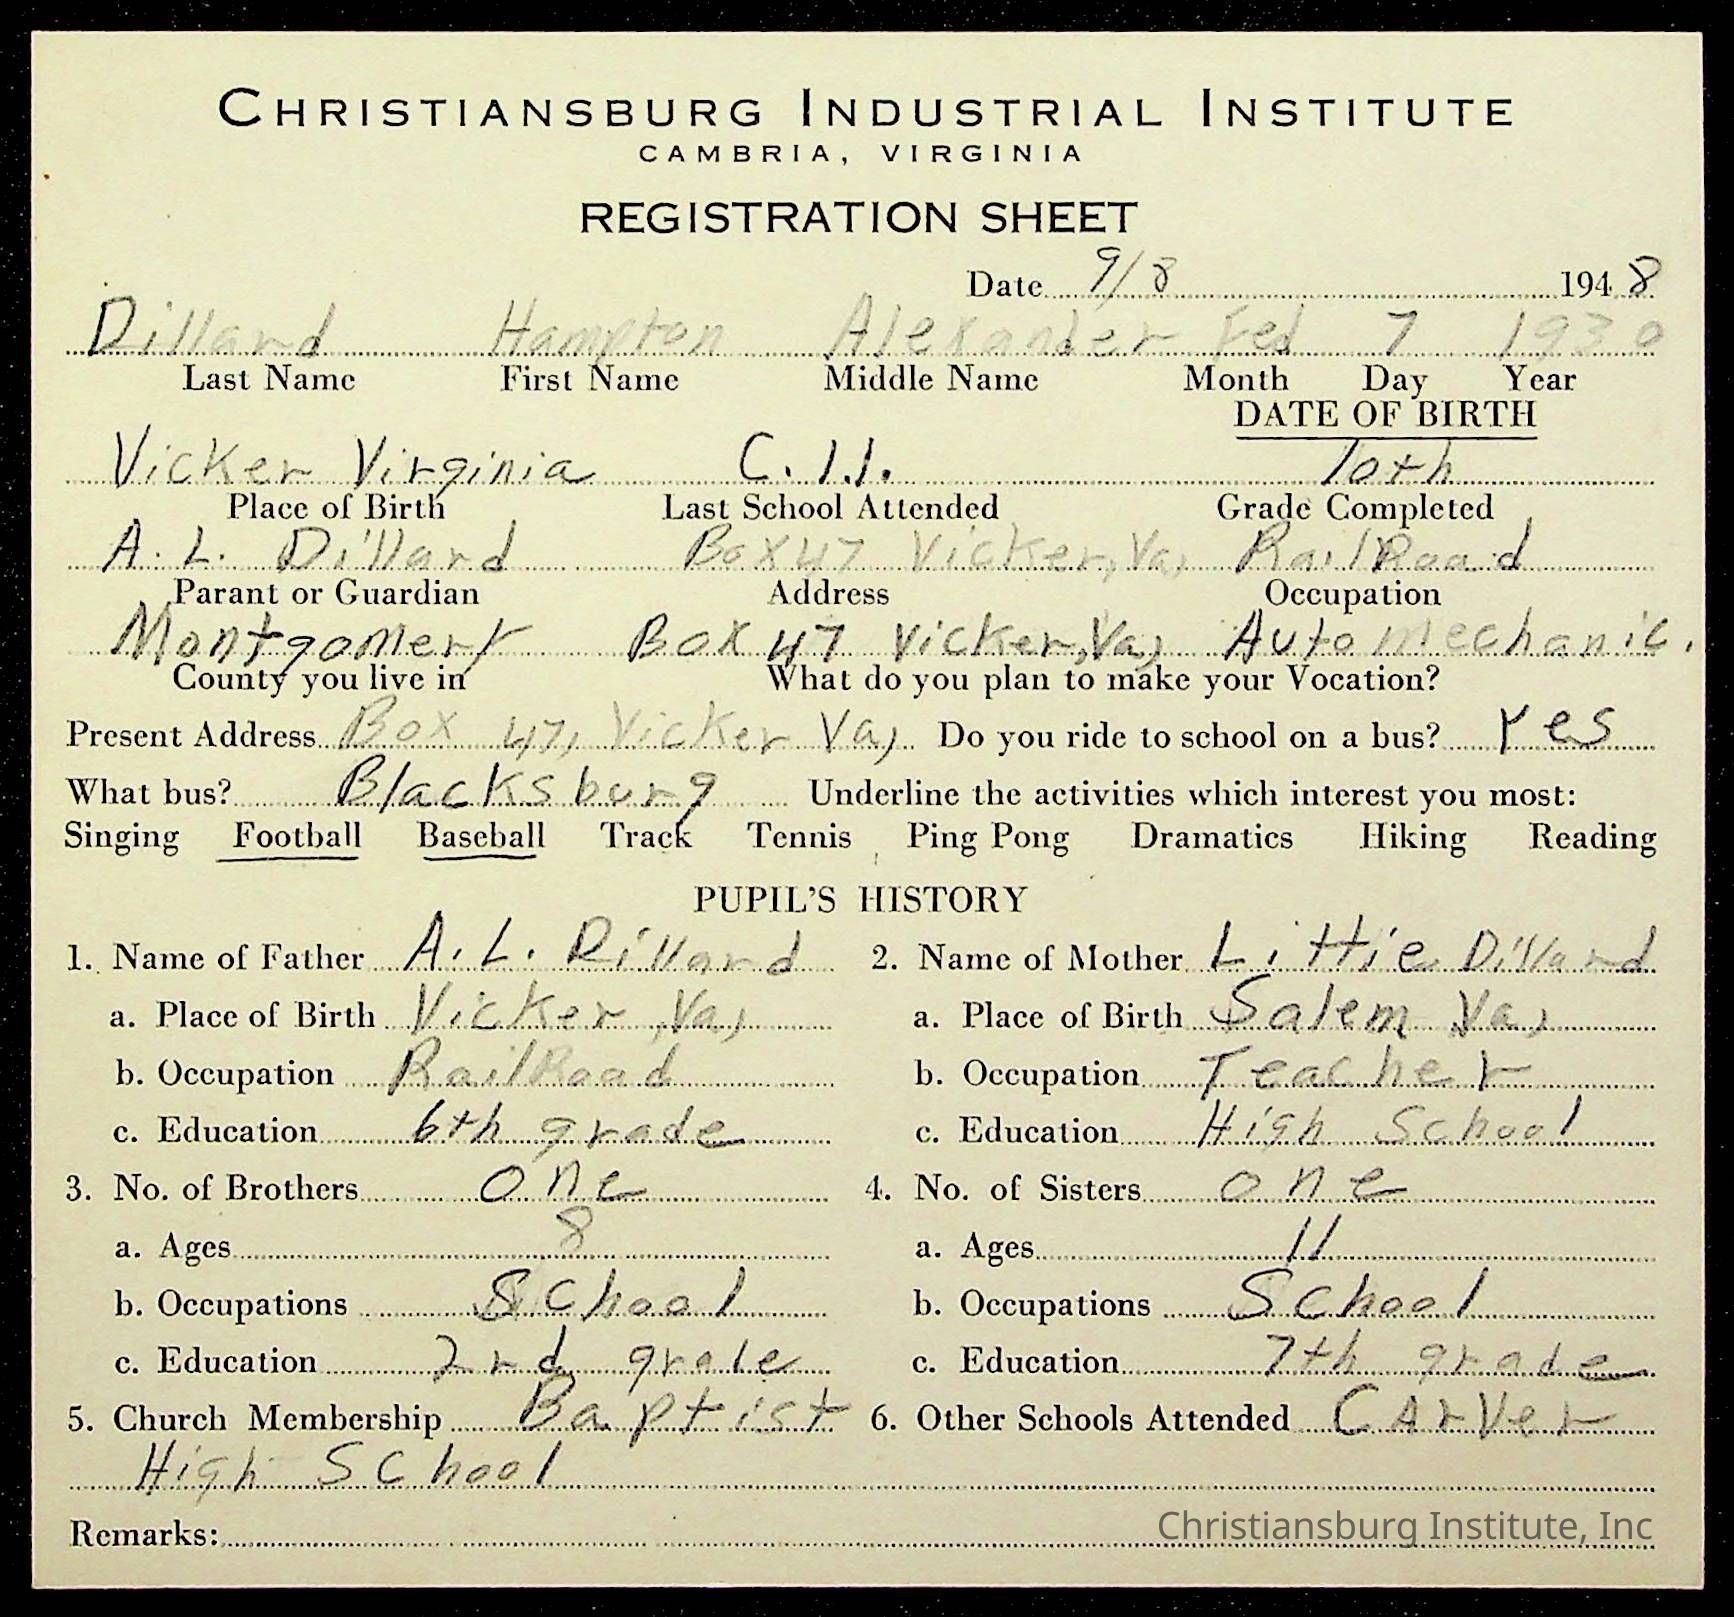 CHRISTIANSBURG INDUSTRIAL INSTITUTE
CAMBRIA, VIRGINIA
REGISTRATION SHEET
Date 9/8 1948
Dillard Hampton Alexander Feb 7 1930
Last Name First Name Middle Name Month Day Year
DATE OF BIRTH
Vicker Virginia C.I.I. 10th
Place of Birth Last School Attended Grade Completed
A. L. Dillard Box 47 Vicker, Va, RailRoad
Parant or Guardian Address Occupation
Montgomery Box 47 Vicker, Va, Auto mechanic.
County you live in What do you plan to make your Vocation?
Present Address Box 47, Vicker Va, Do you ride to school on a bus? Yes
What bus? Blacksburg Underline the activities which interest you most:
Singing Football Baseball Track Tennis Ping Pong Dramatics Hiking Reading
PUPIL'S HISTORY
1. Name of Father A. L. Dillard 2. Name of Mother Littie Dillard
a. Place of Birth Vicker, Va, a. Place of Birth Salem Va,
b. Occupation RailRoad b. Occupation Teacher
c. Education 6th grade c. Education High School
3. No. of Brothers one 4. No. of Sisters one
a. Ages 8 a. Ages 11
b. Occupations School b. Occupations School
c. Education 2rd grade c. Education 7th grade
5. Church Membership Baptist 6. Other Schools Attended CArVer
High School
Remarks:
Christiansburg Institute, Inc